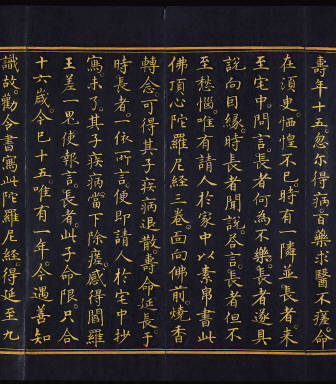 壽年十五忽尓得病百藥求醫不瘥命
在須臾恓惶不已時有一隣並長者来
至宅中問言長者何為不樂長者遂具
說向因緣時長者聞說荅言長者但不
至愁惱唯有請人於家中以素帛書此
佛頂心陀羅尼經三卷面向佛前燒香
轉念可得其子疾病退散壽命延長于
時長者一依所言便即請人於宅中抄
寫未了其子疾病當下除瘥感得閻羅
王差一鬼使報言長者此子命限只合
十六歲今已十五唯有一年今遇善知
識故勸令書寫此陀羅尼經得延至九